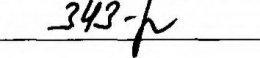 343-р